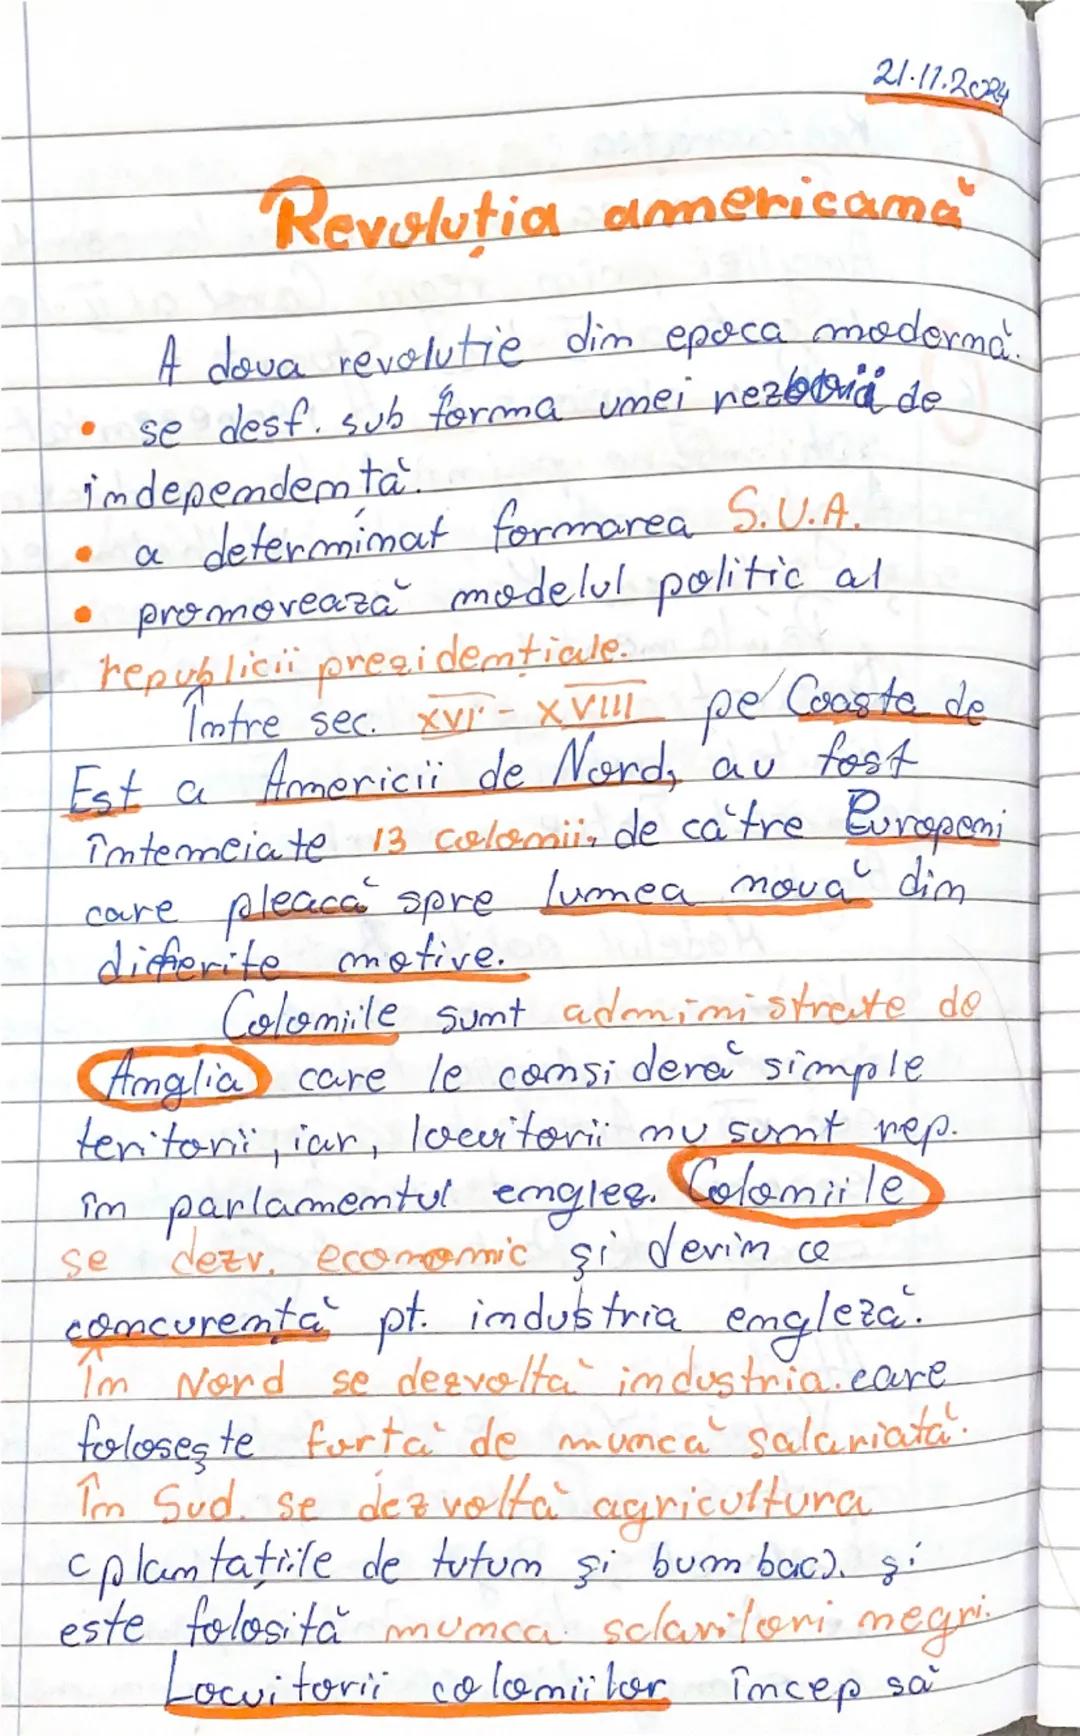 21.11.2024
Revoluția americană
A doua revolutie din epoca modernă.
• se desf. sub forma unei de
independență.
• a determinat formarea S.U.A.
• promovează modelul politic al
republicii prezidențiale.
Între sec. XVI - XVIII pe Coasta de
Est a Americii de Nord, au fost
întemeiate 13 colonii, de către Europeni
care pleacă spre lumea nouă din
diferite motive.
Coloniile sunt administrate de
Anglia care le consideră simple
teritorii, iar, locuitorii nu sunt rep.
în parlamentul englez. Coloniile
se dezv. economic și devin ca
concurență pt. industria engleză.
În Nord se dezvoltă industria. care
folosește forta de muncă salariată.
În Sud. se dezvoltă agricultura
(plantațiile de tutun și bumbac). și
este folosită munca sclavilori negri.
Locuitorii coloniilor încep să